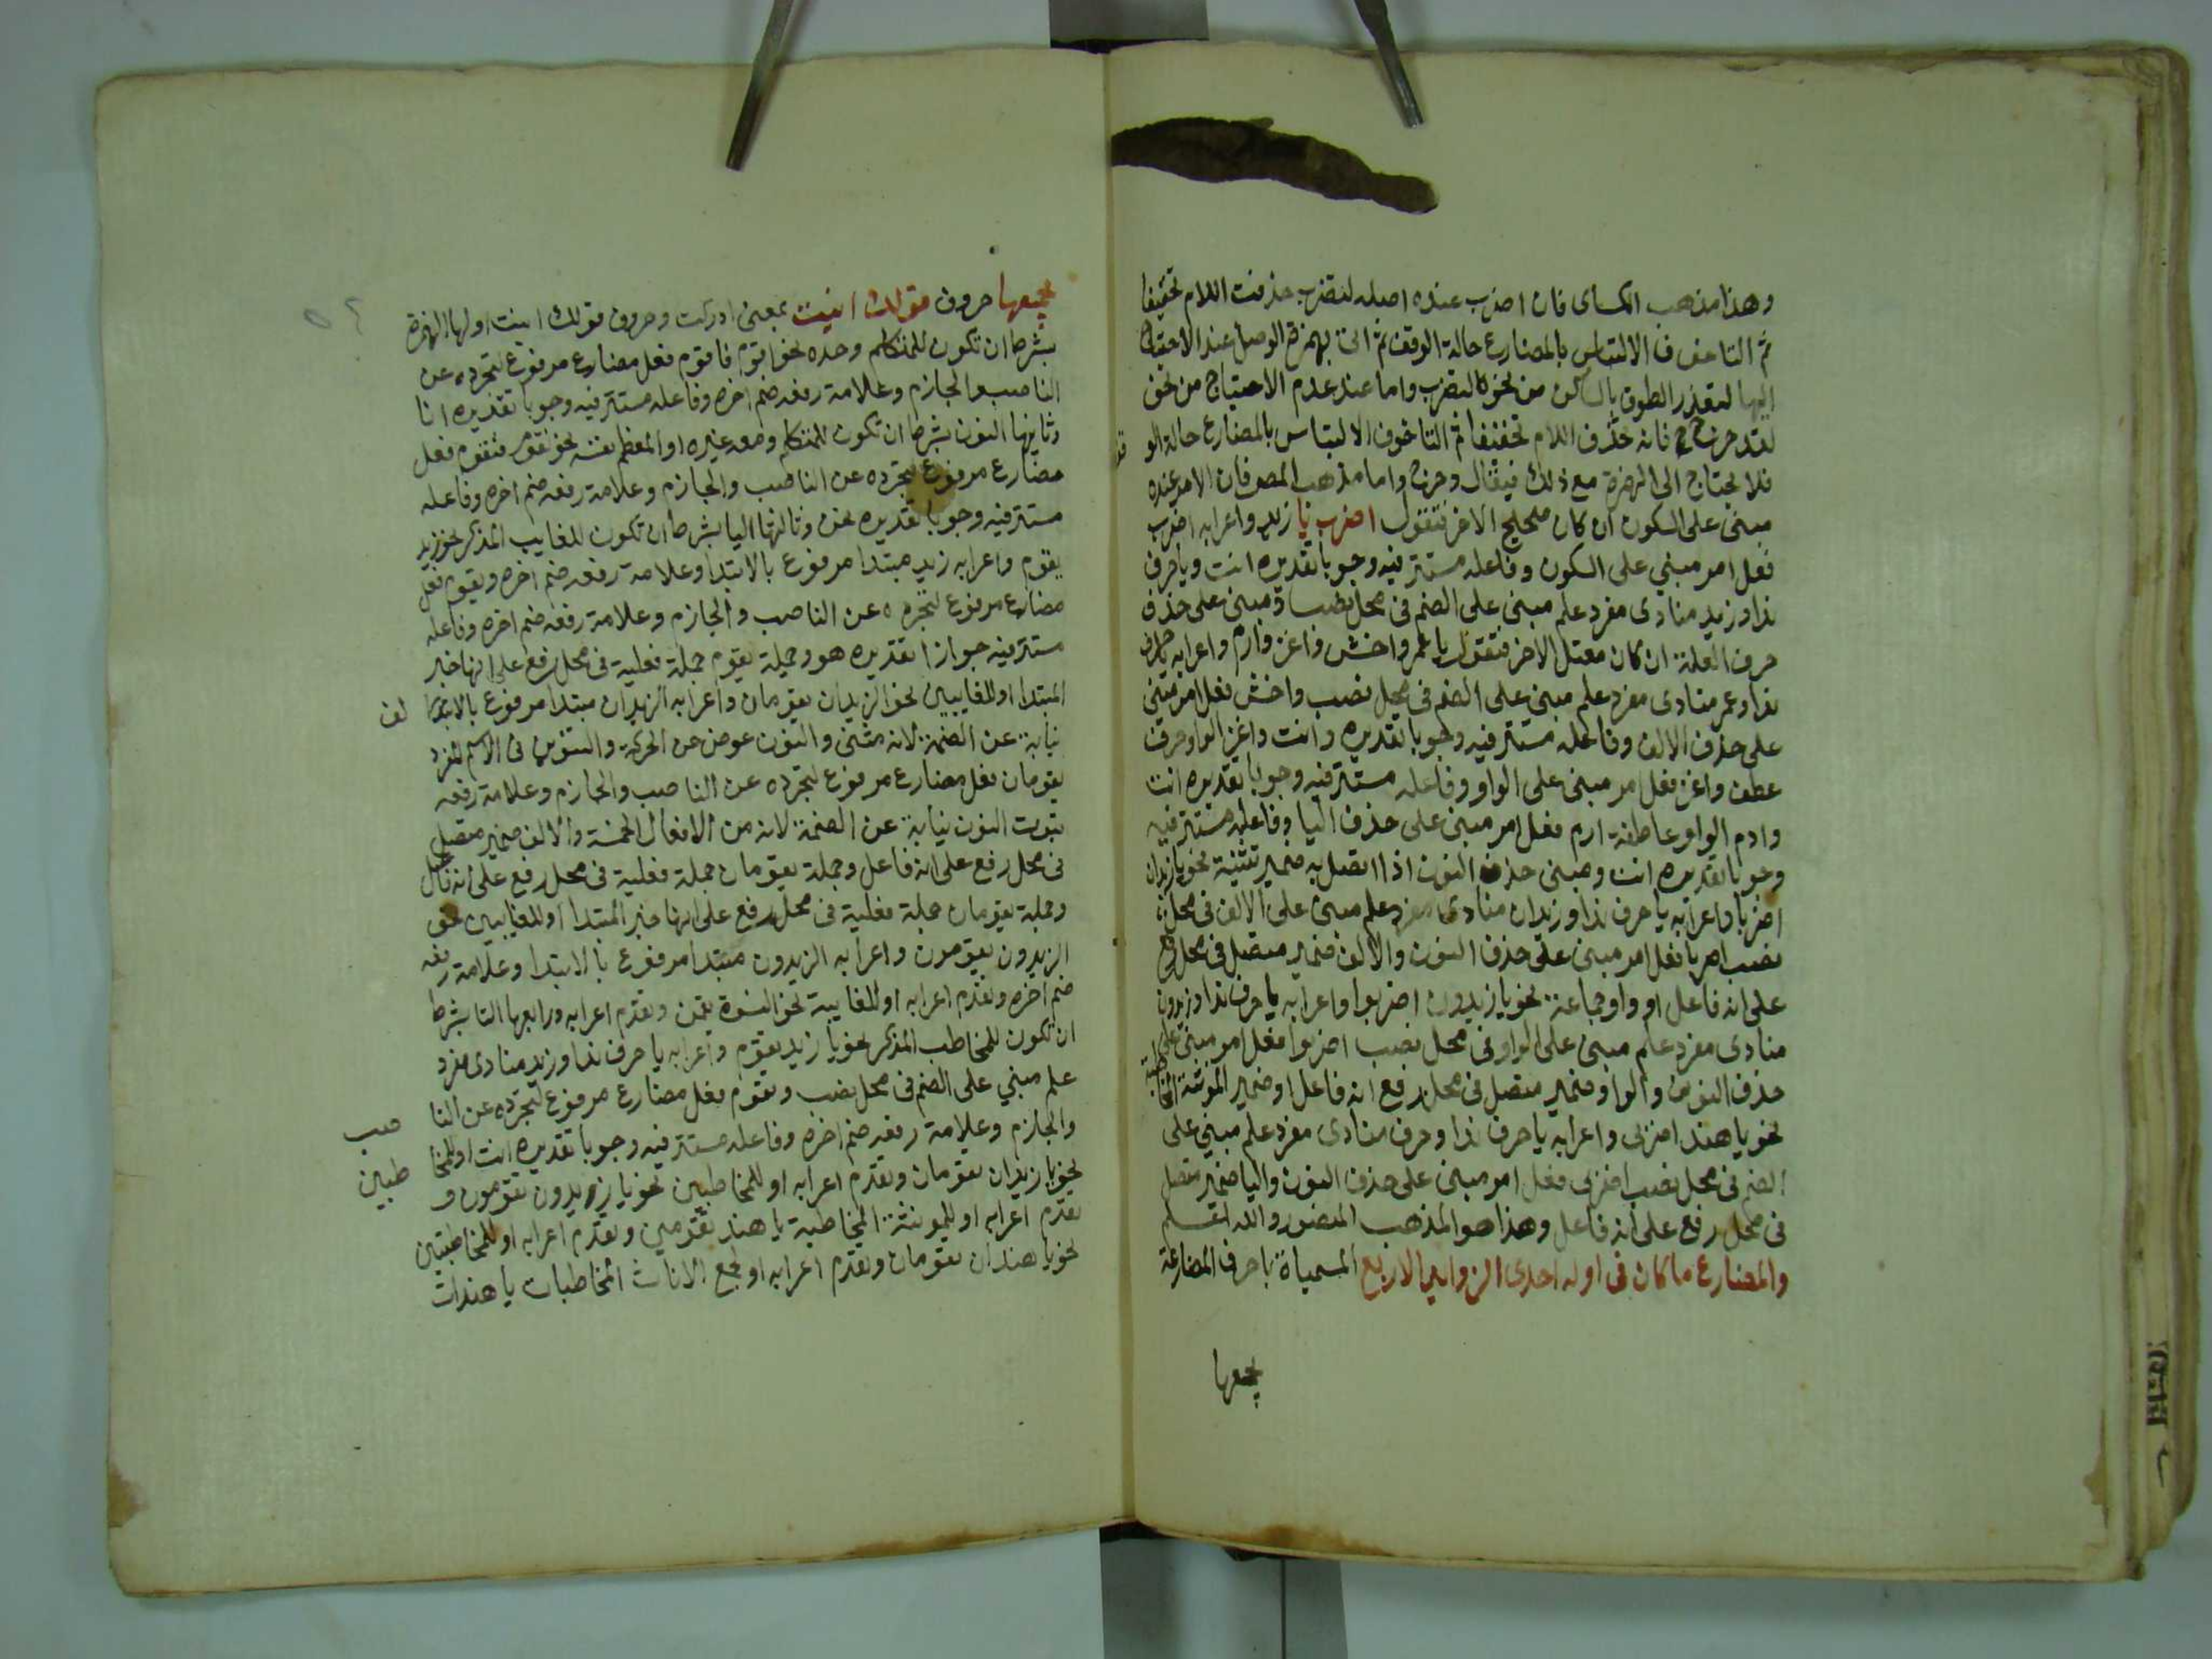 وهذا مذهب الكساى فان اضرب عنده اصله لتضرب حذفت اللام تخفيفا
ثم التا خوف الالتباس بالمضارع حالة الوقف ثم اتى بهمزة الوصل عند الاحتياج
اليها لتعذر النطق بالساكن من نحو لتضرب واما عند عدم الاحتياج من نحو
لتدحرج فانه حذف اللام تخفيفا ثم التا خوف الالتباس بالمضارع حالة الو
فلا يحتاج الى الهمزة مع ذلك فيقال دحرج واما مذهب المص فان الامر عنده
مبنى على السكون ان كان صحيح الاخر فتقول اضرب يا زيد واعرابه اضرب
فعل امر مبني على السكون وفاعله مستتر فيه وجوبا تقديره انت ويا حرف
ندا وزيد منادى مفرد علم مبنى على الضم فى محل نصب او مبنى على حذف
حرف العلة ان كان معتل الاخر فتقول يا عمر واخش واغز وارم واعرابه يا حرف
ندا وعمر منادى مفرد علم مبنى على الضم فى محل نصب واخش فعل امر مبنى
على حذف الالف وفاعله مستتر فيه وجوبا تقديره انت واغز الواو حرف
عطف واغز فعل امر مبنى على الواو وفاعله مستتر فيه وجوبا تقديره انت
وارم الواو عاطفة ارم فعل امر مبنى على حذف اليا وفاعله مستتر فيه
وجوبا تقديره انت ومبنى حذف النون اذا اتصل به ضمير تثنية نحو يا زيدان
اضربا واعرابه يا حرف ندا وزيدان منادى مفرد علم مبنى على الالف فى محل
نصب اضربا فعل امر مبنى على حذف النون والالف ضمير متصل فى محل رفع
على انه فاعل او واو جماعة نحو يا زيدون اضربوا واعرابه يا حرف ندا وزيدون
منادى مفرد علم مبنى على الواو فى محل نصب اضربوا فعل امر مبنى على
حذف النون والواو ضمير متصل فى محل رفع انه فاعل او ضمير المونثة المخاطبة
نحو يا هند اضربى واعرابه يا حرف ندا وحرف منادى مفرد علم مبني على
الضم فى محل نصب اضربى فعل امر مبنى على حذف النون واليا ضمير متصل
فى محل رفع على انه فاعل وهذا هو المذهب المنصور والله اعلم
والمضارع ما كان فى اوله احدى الزوايد الاربع المسمياة باحرف المضارعة
يجمعها
يجمعها حروف قولك انيت بمعنى ادركت وحروف قولك انيت اولها الهمزة
بشرط ان تكون للمتكلم وحده نحو اقوم فاقوم فعل مضارع مرفوع لتجرده عن
الناصب والجازم وعلامة رفعه ضم اخره وفاعله مستتر فيه وجوبا تقديره انا
وثانيها النون بشرط ان تكون للمتكلم ومعه غيره او المعظم نفسه نحو نقوم فنقوم فعل
مضارع مرفوع لتجرده عن الناصب والجازم وعلامة رفعه ضم اخره وفاعله
مستتر فيه وجوبا تقديره نحن وثالثها اليا بشرط ان تكون للغايب المذكر نحو زيد
يقوم واعرابه زيد مبتدا مرفوع بالابتدا وعلامة رفعه ضم اخره ويقوم فعل
مضارع مرفوع لتجرده عن الناصب والجازم وعلامة رفعه ضم اخره وفاعله
مستتر فيه جوازا تقديره هو وجملة يقوم جملة فعلية فى محل رفع على انها خبر
المبتدا او للغايبين نحو الزيدان يقومان واعرابه الزيدان مبتدا مرفوع بالابتدا لف
نيابة عن الضمة لانه مثنى والنون عوض عن الحركة والتنوين فى الاسم المفرد
يقومان فعل مضارع مرفوع لتجرده عن الناصب والجازم وعلامة رفعه
ثبوت النون نيابة عن الضمة لانه من الافعال الخمسة والالف ضمير متصل
فى محل رفع على انه فاعل وجملة يقومان جملة فعلية فى محل رفع على انه فاعل
وجملة يقومان جملة فعلية فى محل رفع على انها خبر المبتدا او للغايبين نحو
الزيدون يقومون واعرابه الزيدون مبتدا مرفوع بالابتدا وعلامة رفعه
ضم اخره وتقدم اعرابه او للغايبة نحو النسوة يقمن وتقدم اعرابه ورابعها التا بشرط
ان تكون للمخاطب المذكر نحو يا زيد تقوم واعرابه يا حرف ندا وزيد منادى مفرد
علم مبني على الضم فى محل نصب وتقوم فعل مضارع مرفوع لتجرده عن النا صب
والجازم وعلامة رفعه ضم اخره وفاعله مستتر فيه وجوبا تقديره انت او للمخا طبين
نحو يا زيدان تقومان وتقدم اعرابه او للمخاطبين نحو يا زيدون تقومون و
تقدم اعرابه او للمونثة المخاطبة يا هند تقومين وتقدم اعرابه او للمخاطبتين
نحو يا هندان تقومان وتقدم اعرابه او لجمع الاناث المخاطبات يا هندات